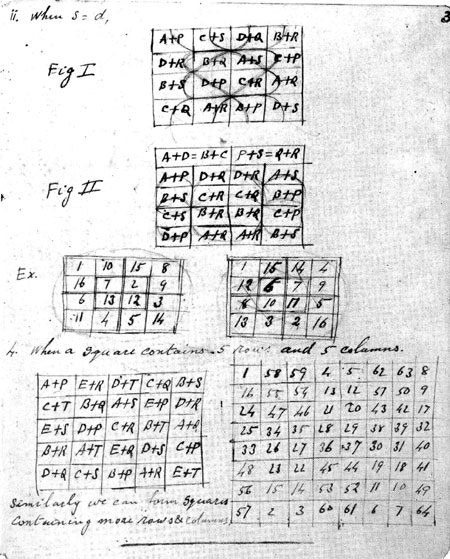 ii. When S = d,
3
Fig I
A+P C+S D+Q B+R
D+R B+Q A+S C+P
B+S D+P C+R A+Q
C+Q A+R B+P D+S
Fig II
A+D=B+C P+S=Q+R
A+P D+Q D+R A+S
B+S C+R C+Q B+P
C+S B+R B+Q C+P
D+P A+Q A+R
Ex.
1 10 15 8
16 7 2 9
6 13 12 3
11 4 5 14
1 15 14 4
12 6 7 9
8 10 11 5
13 3 2 16
4. When a square contains 5 rows and 5 columns.
A+P E+R D+T C+Q B+S
C+T B+Q A+S E+P D+R
E+S D+P C+R B+T A+Q
B+R A+T E+Q D+S C+P
D+Q C+S B+P A+R E+T
Similarly we can form squares
containing more rows & columns
1 58 59 4 5 62 63 8
16 55 54 13 12 51 50 9
24 47 46 21 20 43 42 17
25 34 35 28 29 38 39 32
33 26 27 36 37 30 31 40
48 23 22 45 44 19 18 41
56 15 14 53 52 11 10 49
57 2 3 60 61 6 7 64